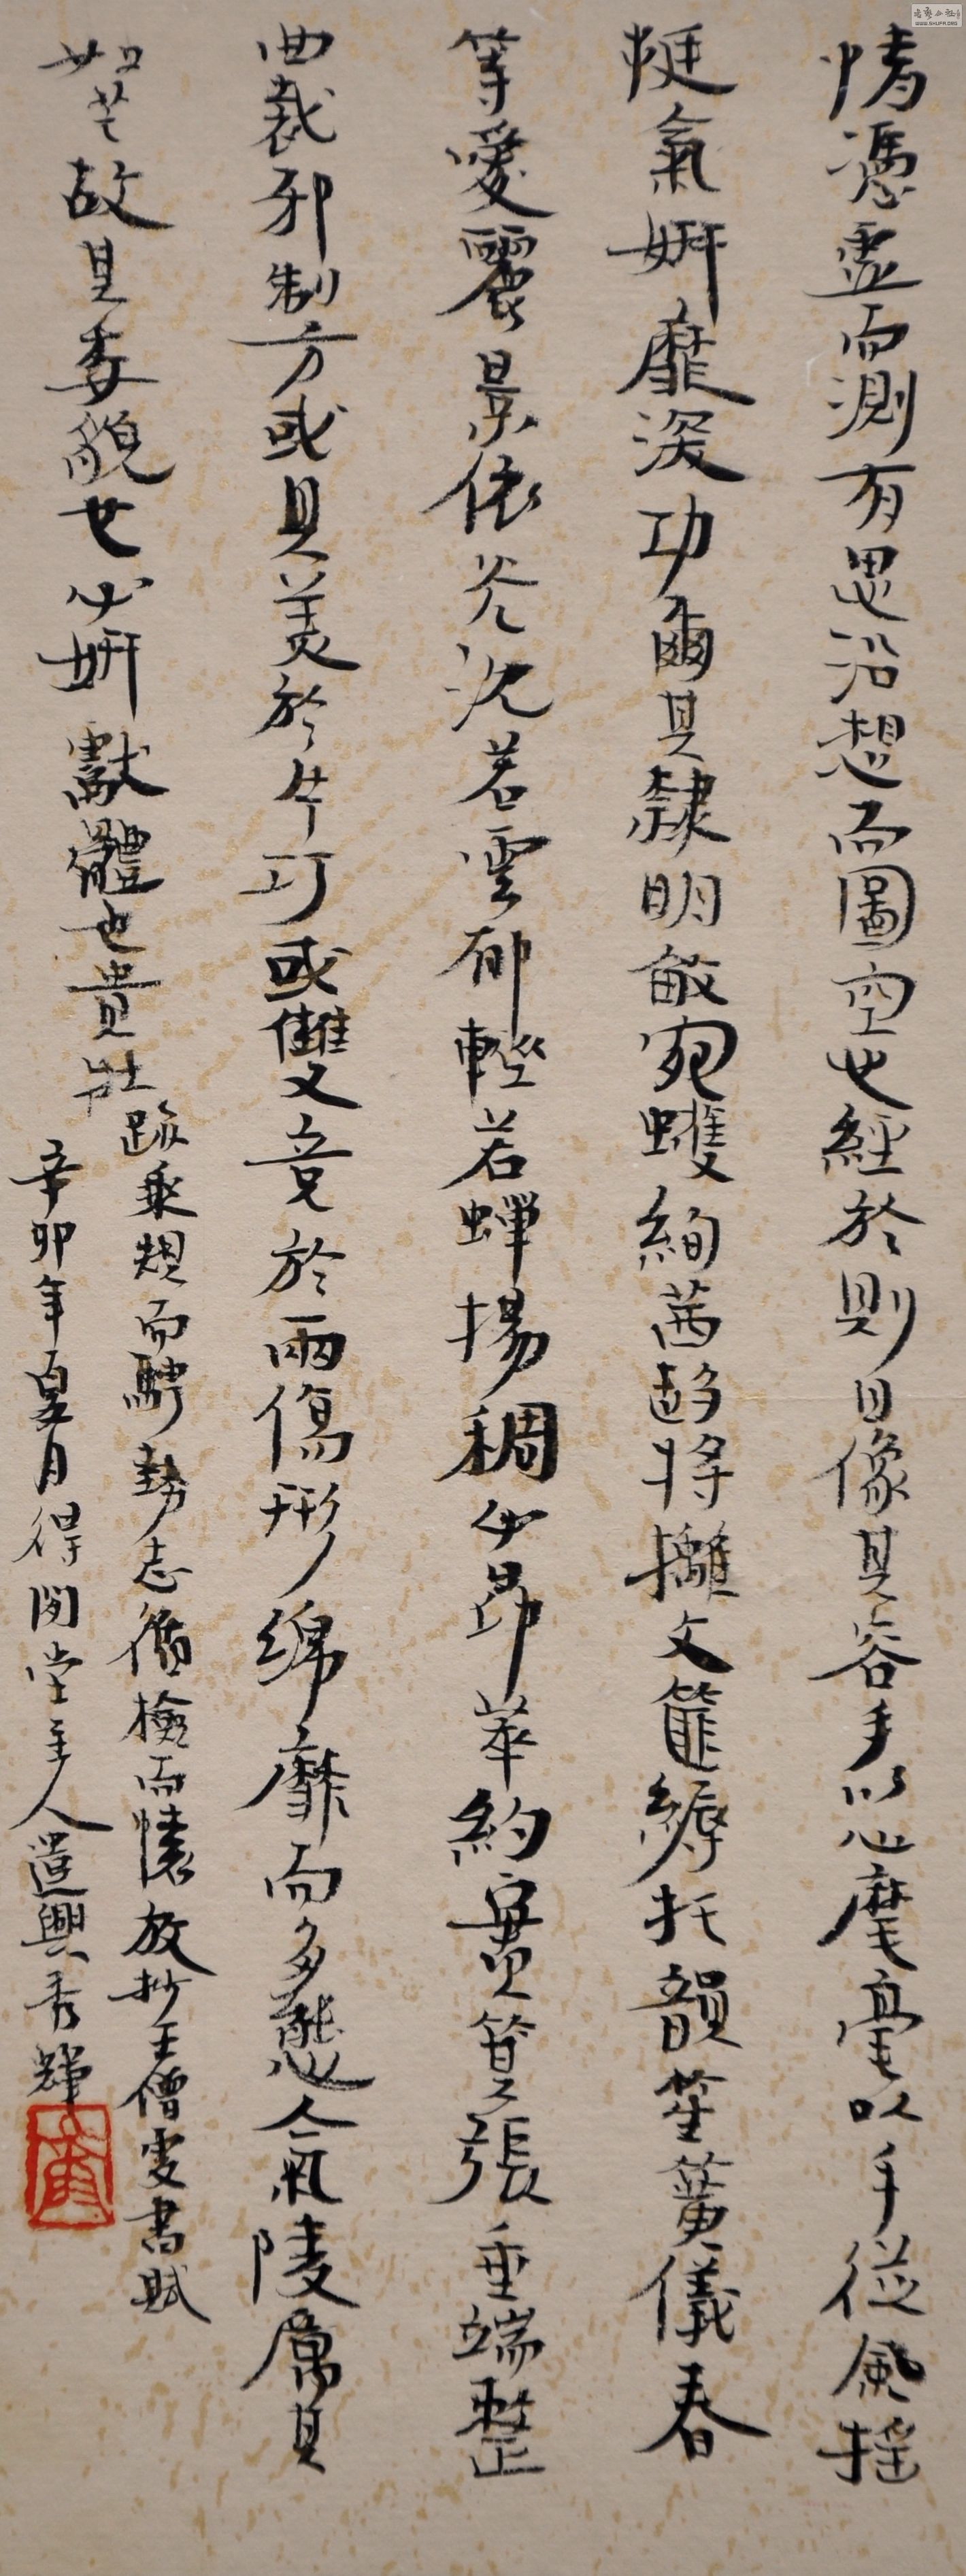 情憑虛而測有思沿想而圖空也經於則目像其容手以心麾毫以手從風搖
挺氣妍靡深功爾其隸明敏宛蠖絢茜趍將摛文篚縟托韻笙簧儀春
等愛麗景依光沉若雲郁輕若蟬揚稠必昂萃約實箕張垂端整
曲裁邪制方或具美於片巧或雙竞於兩傷形綿靡而多態氣陵厲其
如芒故其委貌也必妍獻體也貴壯
跡乘規而騁勢志循檢而懷放抄王僧虔書賦
辛卯年夏月得閑堂主人遣興秀輝
WWW.SHUFA.ORG